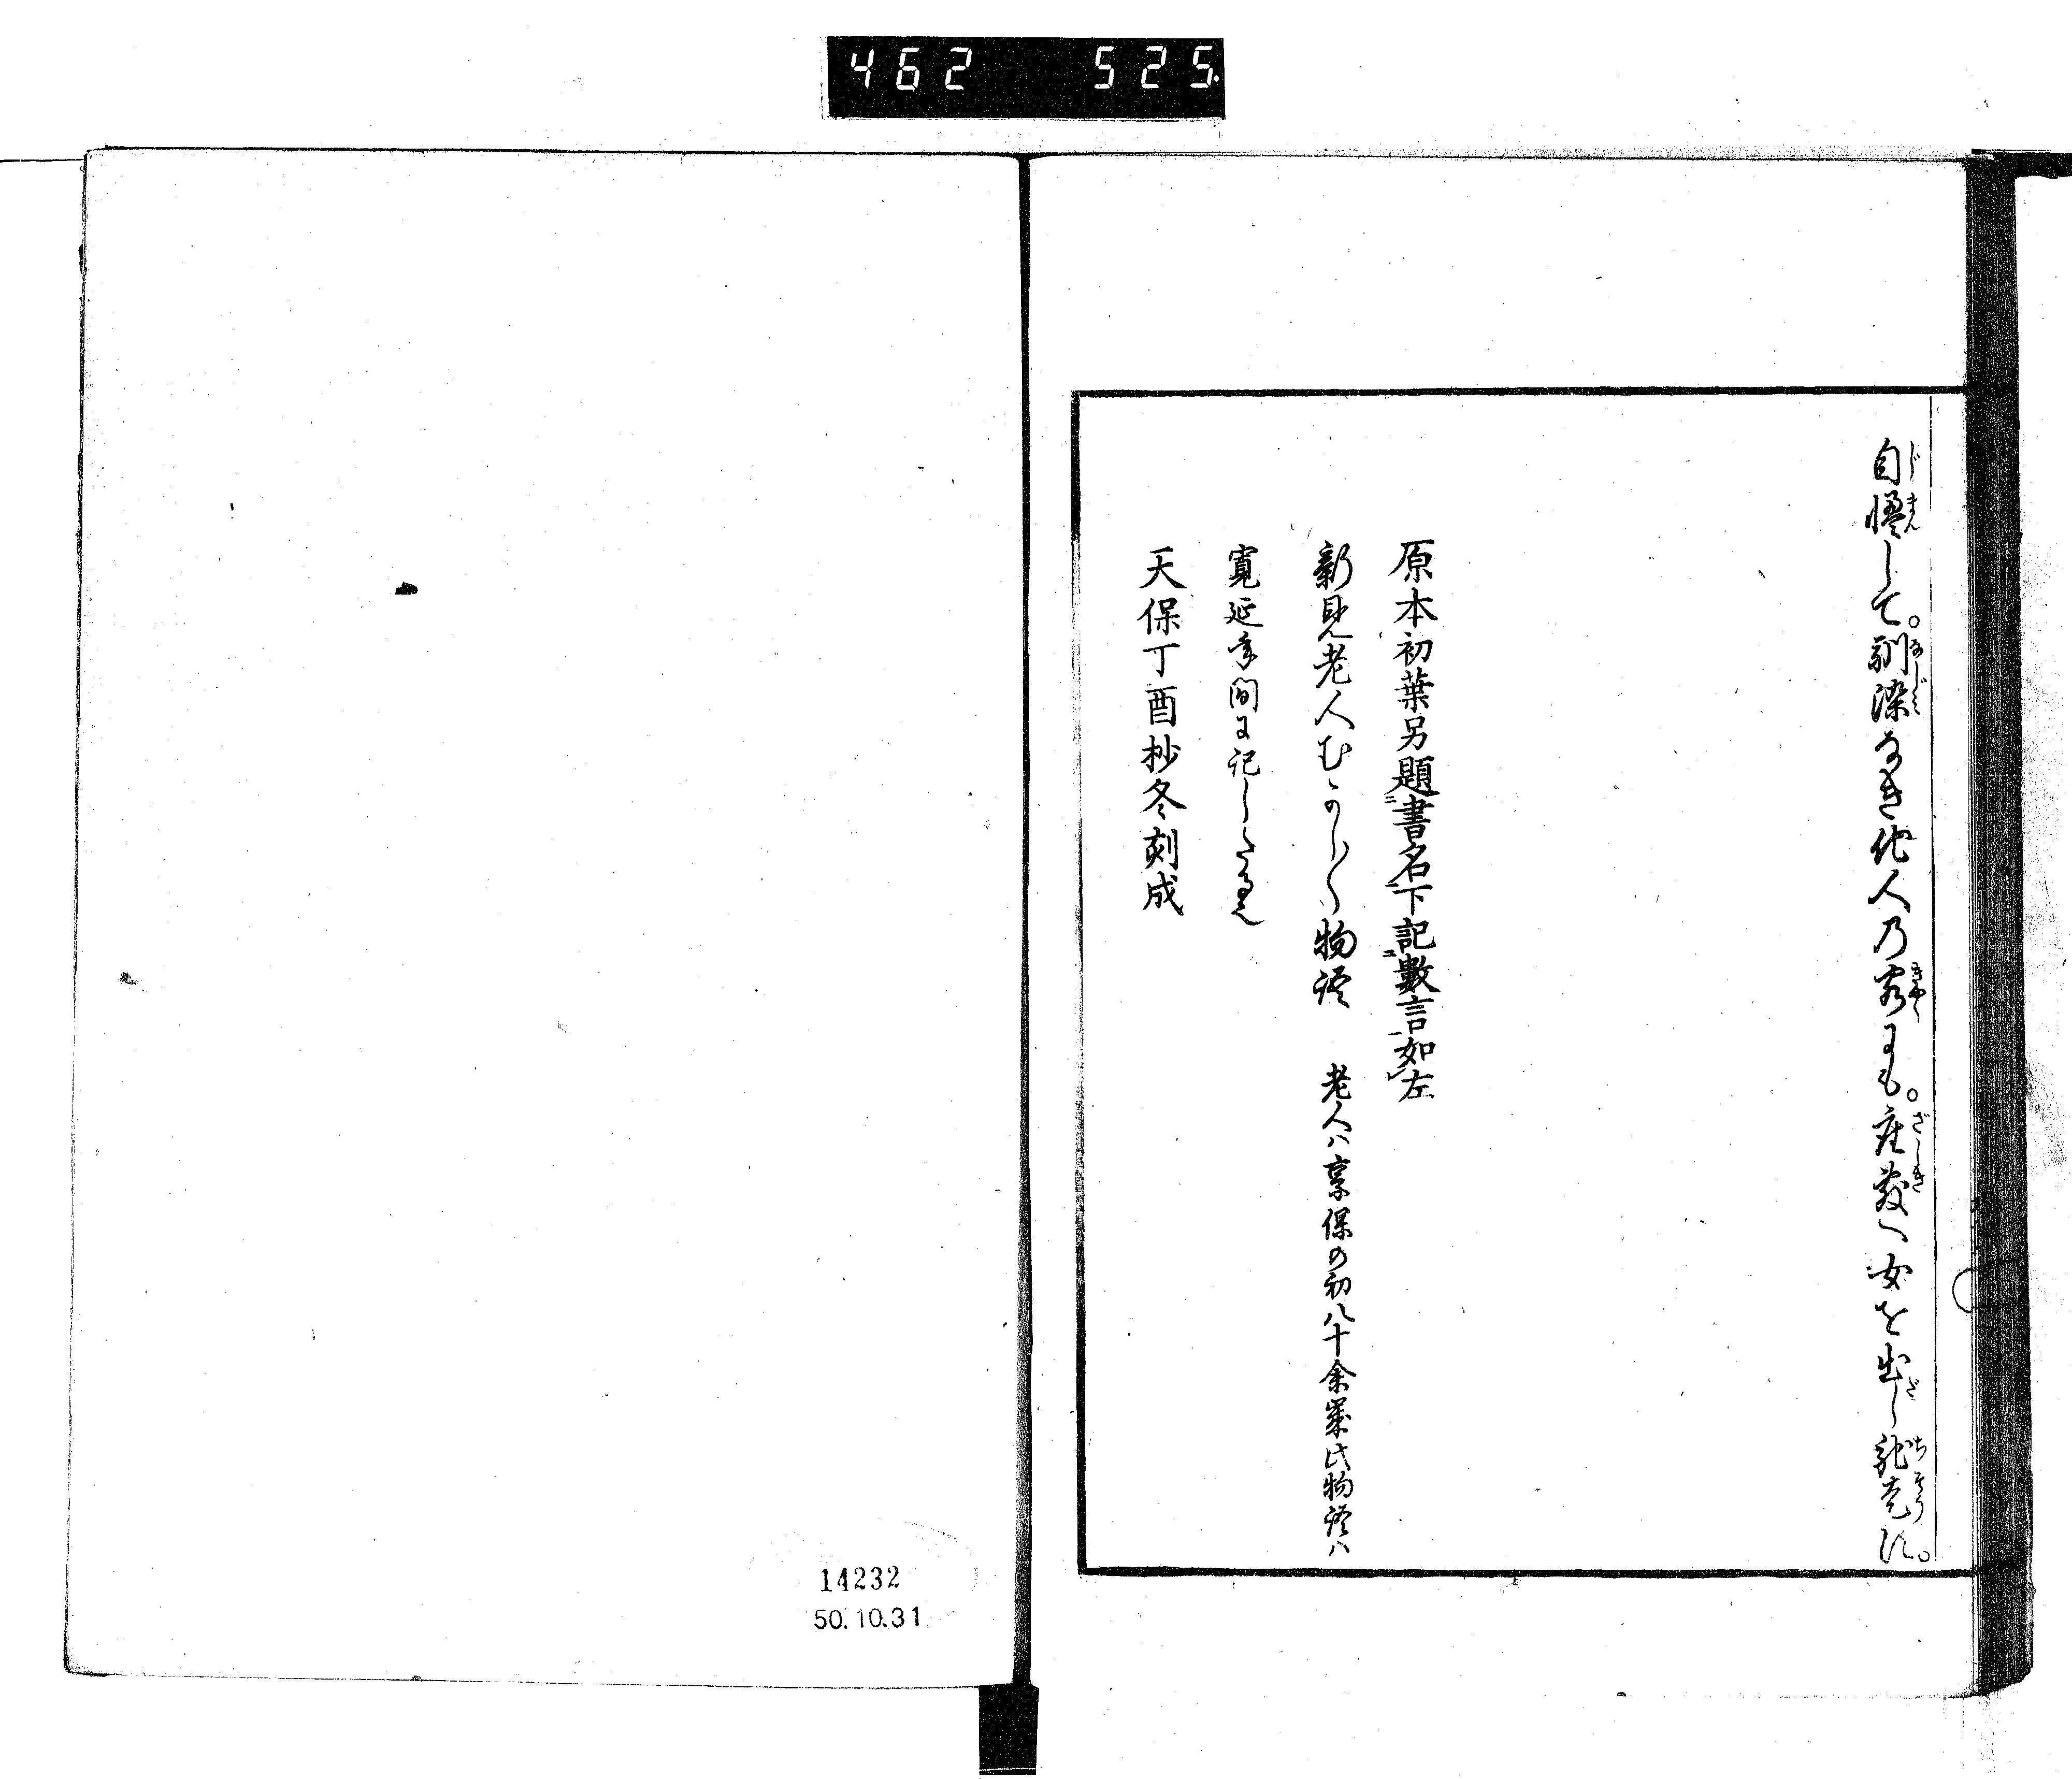 462 525
自慢して。馴染なき他人乃客にも。座敷へ女を出し馳走す。
原本初葉另題書名下記數言如左
新見老人むかし〳〵物語 老人ハ享保の初八十余歳此物語ハ
寛延年間に記し
天保丁酉杪冬刻成
14232
50.10.31